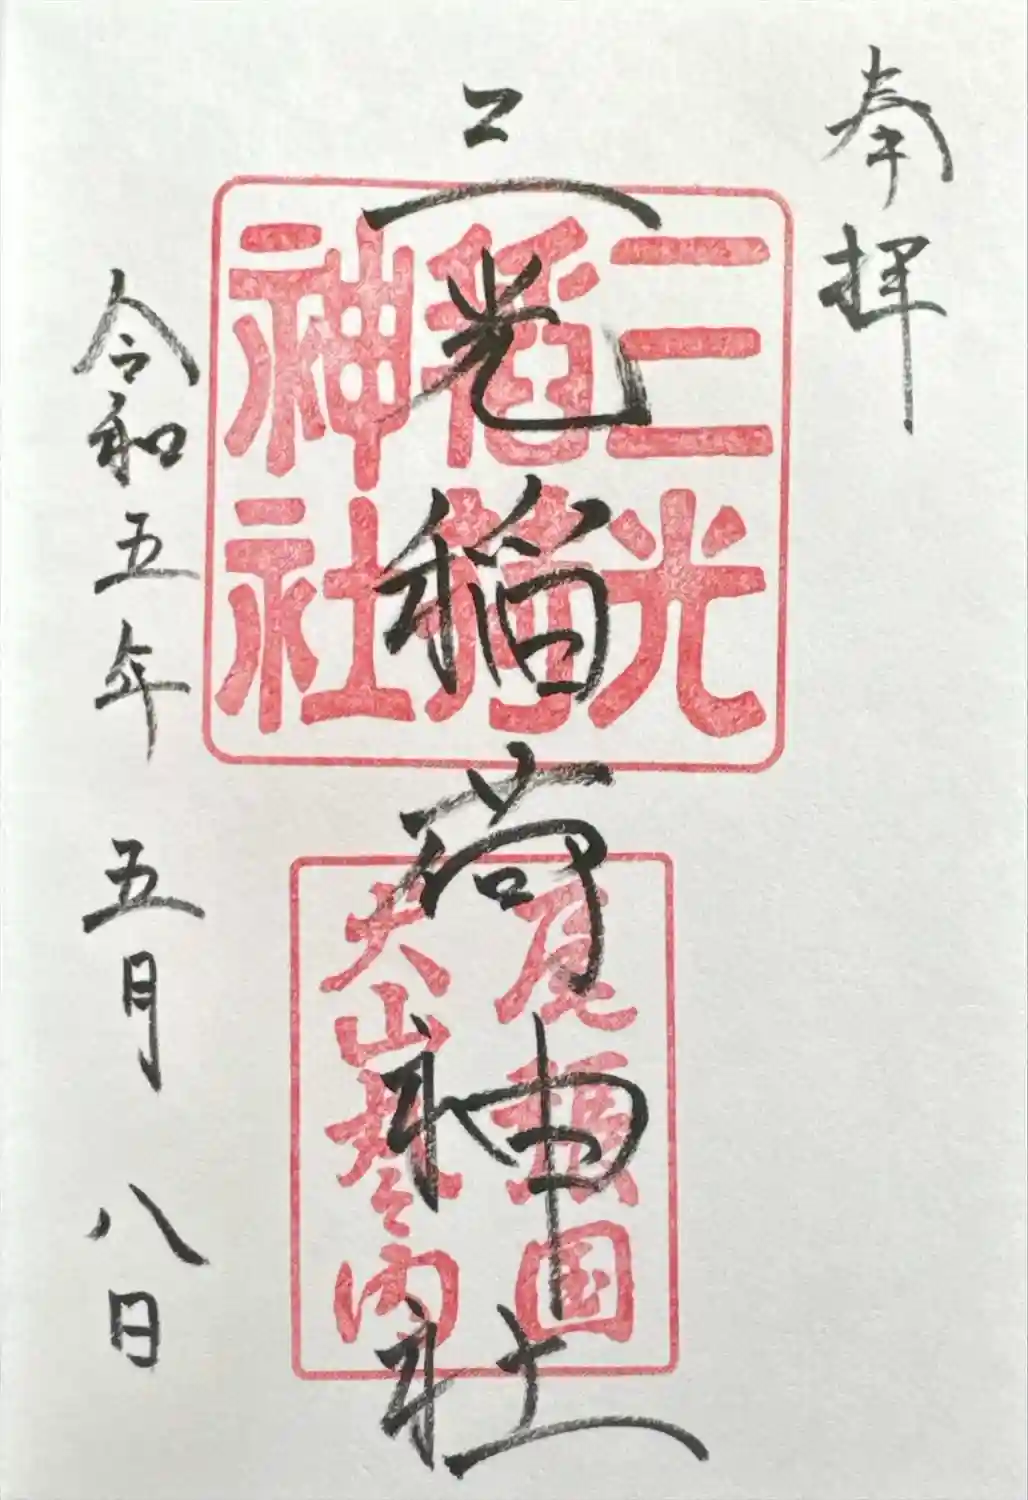 奉拝
三光稲荷神社
令和五年五月八日
三光
稲荷
神社
尾張国
犬山